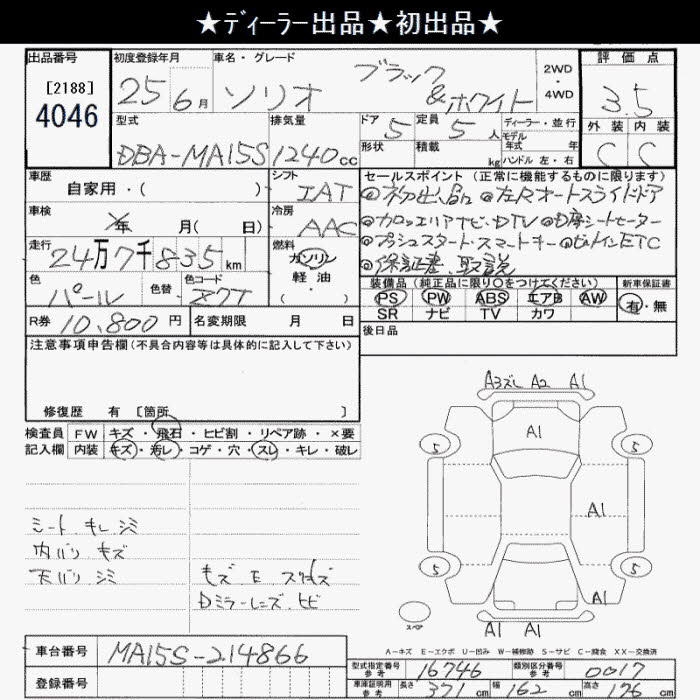 ★ディーラー出品★初出品★
出品番号
[2188]
4046
初度登録年月
25 6月
車名・グレード
ソリオ ブラック&ホワイト
2WD
・
4WD
評価点
3.5
外装 内装
C C
型式
DBA-MA15S
排気量
1240cc
ドア 5
形状
定員 5人
積載 kg
ディーラー・並行
モデル
年式 年
ハンドル 左・右
車歴
自家用・( )
シフト
IAT
車検
年 月( 日)
冷房
AAC
走行
24万7千835km
燃料
ガソリン
軽油
・( )
色
パール
色替
色コード
Z7T
R券 10,800円
名変期限 月 日
セールスポイント(正常に機能するものに限ります)
◎初出品 ◎左Rオートスライドドア
◎カロッツェリアナビ・DTV ◎D席シートヒーター
◎プッシュスタート・スマートキー ◎ビルトインETC
◎保証書、取説
装備品(純正品に限り○をつけてください)
PS PW ABS エアB AW
SR ナビ TV カワ
新車保証書
有・無
後日品
注意事項申告欄(不具合内容等は具体的に記入して下さい)
修復歴 有 [箇所 ]
検査員 FW キズ・飛石・ヒビ割・リペア跡・×要
記入欄 内装 キズ・汚レ・コゲ・穴・スレ・キレ・破レ
シート キレ シミ
内バリ キズ
天バリ シミ
キズ E スリキズ
Dミラーレンズ ヒビ
A3ズレ A2 A1
A1
5 5
A1
5 5
A1
スペア
A1 A1
A-キズ E-エクボ U-凹み W-補修跡 S-サビ C-腐食 XX-交換済
車台番号 MA15S-214866
登録番号
型式指定番号
参考
16746
類別区分番号
参考
0017
車庫証明用
参考
長さ 371cm 幅 162cm 高さ 176cm